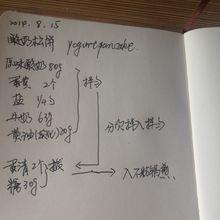 2014.8.15
酸奶松饼 yogurtpancake.
原味酸奶80g
蛋黄 2个
盐 1/4s
牛奶 63g
黄油(融化)20g
拌匀
分次拌入拌匀
蛋清2个
糖30g
入不粘锅煎.